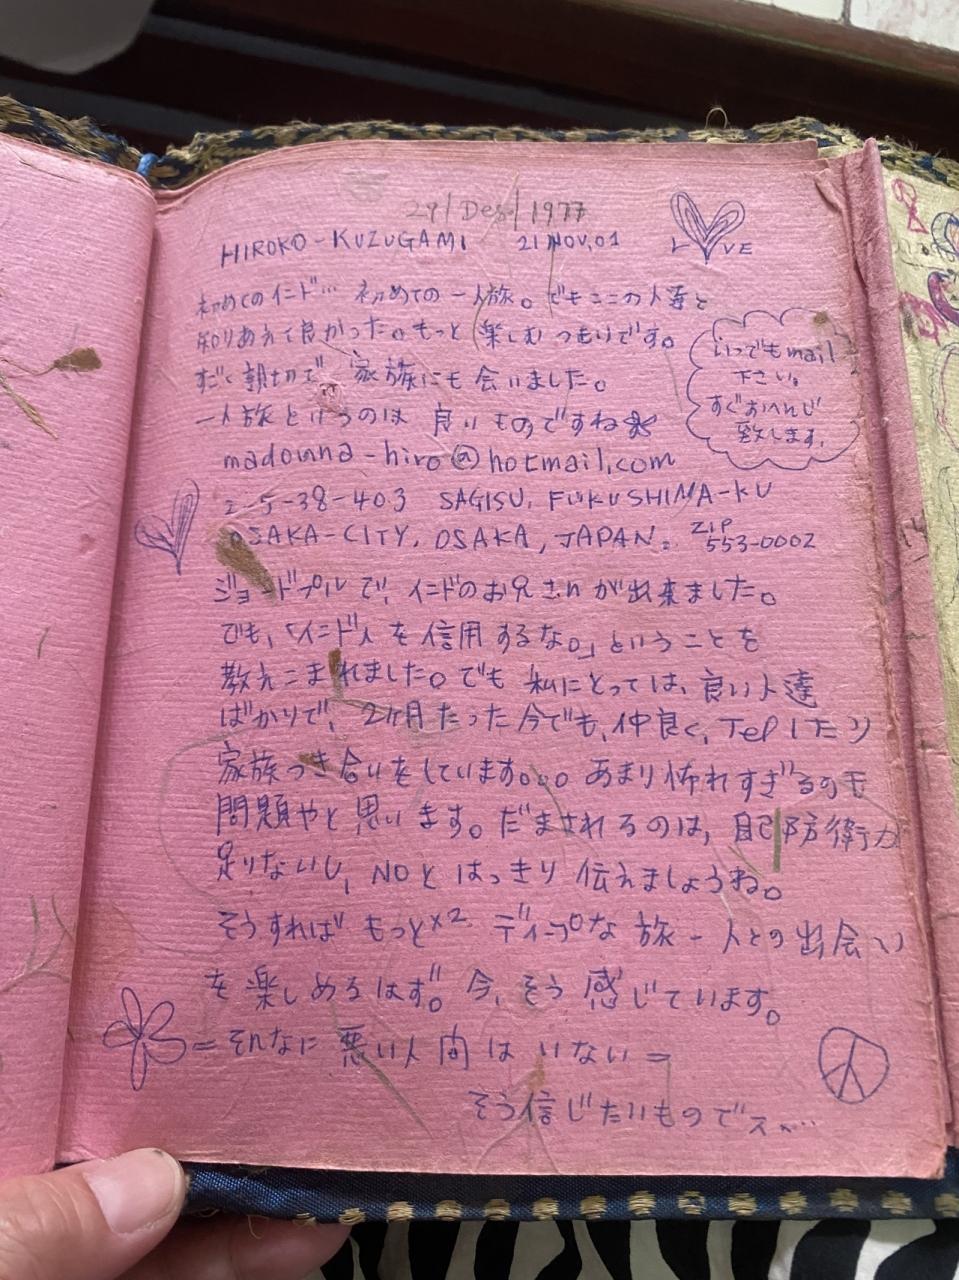 29/Des/1977
HIROKO-KUZUGAMI 21 NOV,01 LOVE
初めてのインド… 初めての一人旅。でもここの人達と
知りあえて良かった。もっと楽しむつもりです。
すごく親切で 家族にも会いました。
一人旅というのは 良いものですね
いつでもmail
下さい。
すぐおへんじ
致します。
madonna-hiro@hotmail.com
2-5-38-403 SAGISU, FUKUSHIMA-KU
OSAKA-CITY, OSAKA, JAPAN. ZIP 553-0002
ジョードプルで、インドのお兄さんが出来ました。
でも、「インド人を信用するな。」ということを
教えこまれました。でも 私にとっては、良い人達
ばかりで、2ヶ月たった今でも、仲良く、Telしたり
家族つき合いをしています。。。あまり怖れすぎるのモ
問題やと思います。だまされるのは、自己防衛力
足りないし、NOと はっきり 伝えましょうね。
そうすれば もっと×2 ディープな 旅-人との出会い
を楽しめるはず。今、そう 感じています。
=そんなに 悪い人間は いない=
そう信じたいものでス…